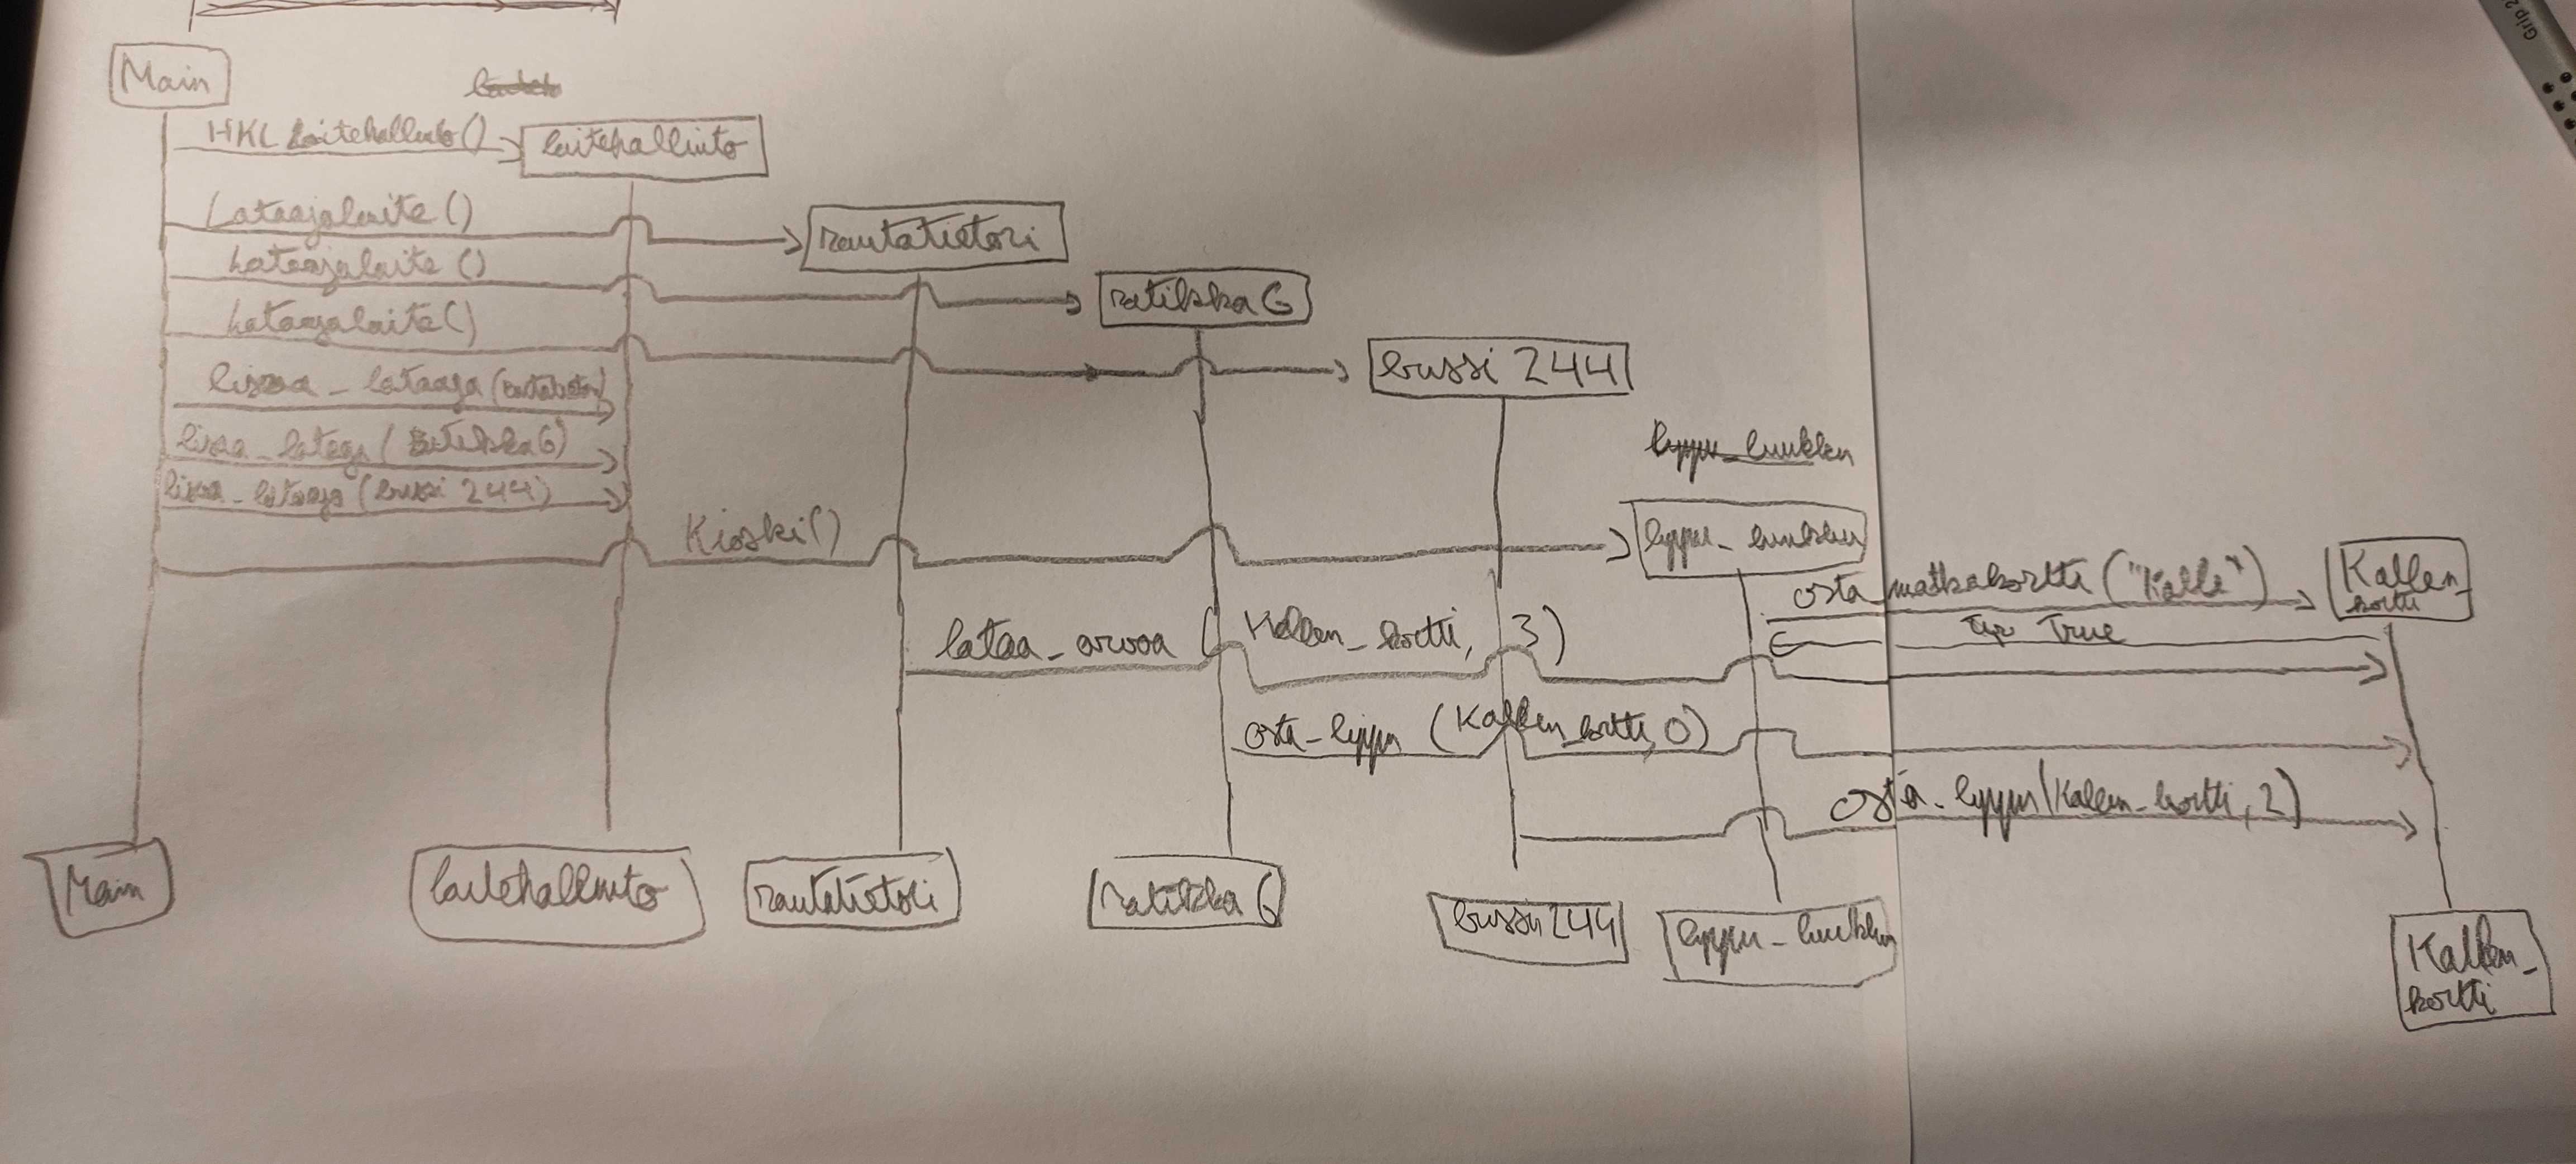 Grip 2
Main
HKL Laitehallinto()
laitehallinto
Lataajalaite()
rautatietori
Lataajalaite()
ratikka6
Lataajalaite()
bussi 244
lisaa_lataaja(rautatietori)
lisaa_lataaja(ratikka6)
lyppu_luukku
lisaa_lataaja(bussi 244)
Kioski()
lyppu_luukku
osta_matkakortti("Kalle")
Kallen_
kortti
True
lataa_arvoa(Kallen_kortti, 3)
osta_lippu(Kallen_kortti, 0)
osta_lippu(Kallen_kortti, 2)
Main
laitehallinto
rautatietori
ratikka 6
bussi 244
lyppu_luukku
Kallen_
kortti